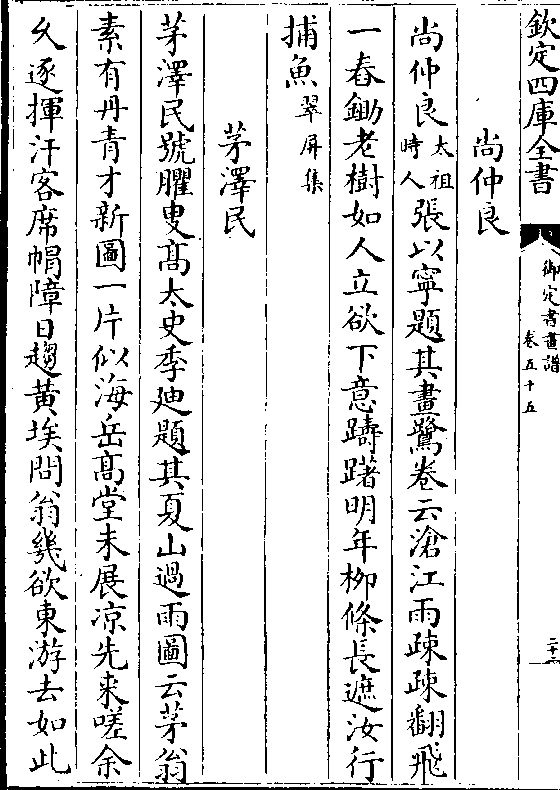 欽定四庫全書
御定書畫譜
卷五十五
二十三
尚仲良
尚仲良太祖時人張以寧題其畫鷺卷云滄江雨疎疎翻飛
一舂鋤老樹如人立欲下意躊躇明年柳條長遮汝行
捕魚翠屏集
茅澤民
茅澤民號臞叟髙太史季迪題其夏山過雨圖云茅翁
素有丹青才新圖一片似海岳髙堂未展凉先来嗟余
久逐揮汗客席帽障日趨黄埃問翁幾欲東游去如此